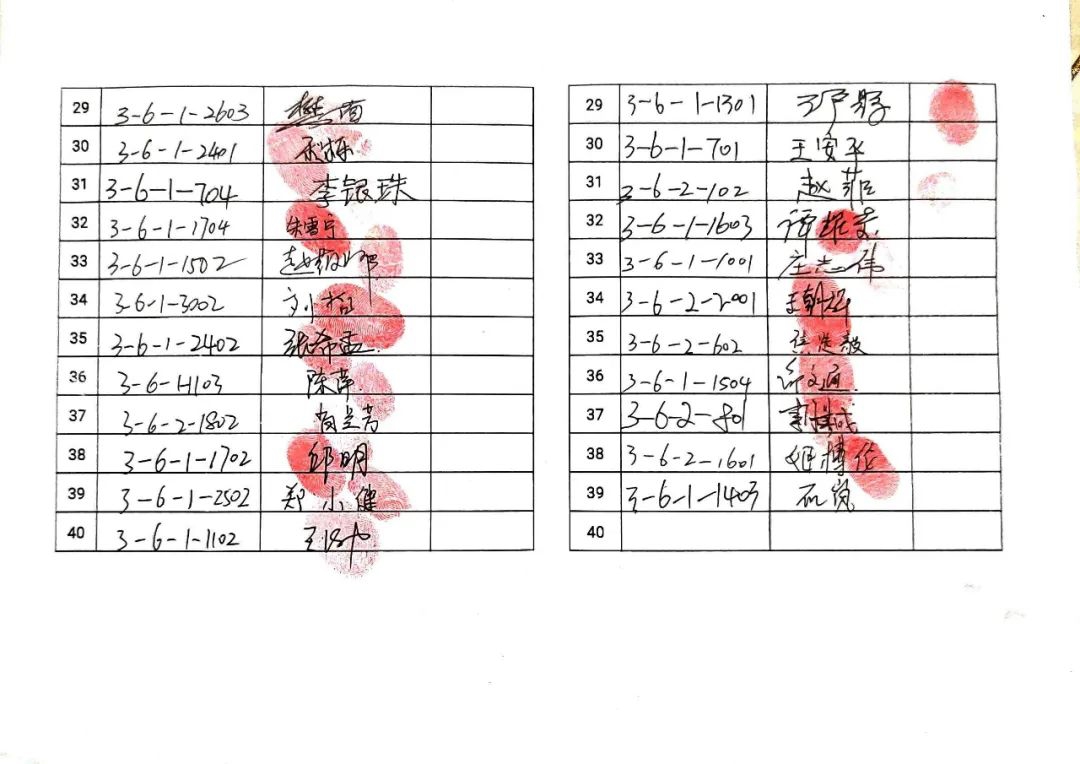 29 3-6-1-2603 樊南
30 3-6-1-2401
31 3-6-1-704 李银珠
32 3-6-1-1704 朱雪宁
33 3-6-1-1502 赵
34 3-6-1-3002 刘小
35 3-6-1-2402 张希孟
36 3-6-1-1103 陈萍
37 3-6-2-1802 肖兰芳
38 3-6-1-1702 邱明
39 3-6-1-2502 郑小健
40 3-6-1-1102 王
29 3-6-1-1301
30 3-6-1-701 王安平
31 3-6-2-102 赵菲
32 3-6-1-1603 谭
33 3-6-1-1001 庄志伟
34 3-6-2-2001 王朝
35 3-6-2-602
36 3-6-1-1504 文通
37 3-6-2-801
38 3-6-2-1601 姬博伦
39 3-6-1-1403 石岚
40